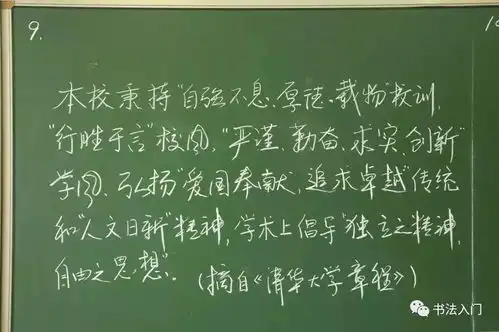 9.
本校秉持"自强不息、厚德载物"校训,
"行胜于言"校风,"严谨、勤奋、求实、创新"
学风、弘扬"爱国奉献、追求卓越"传统
和"人文日新"精神,学术上倡导"独立之精神,
自由之思想"。(摘自《清华大学章程》)
书法入门